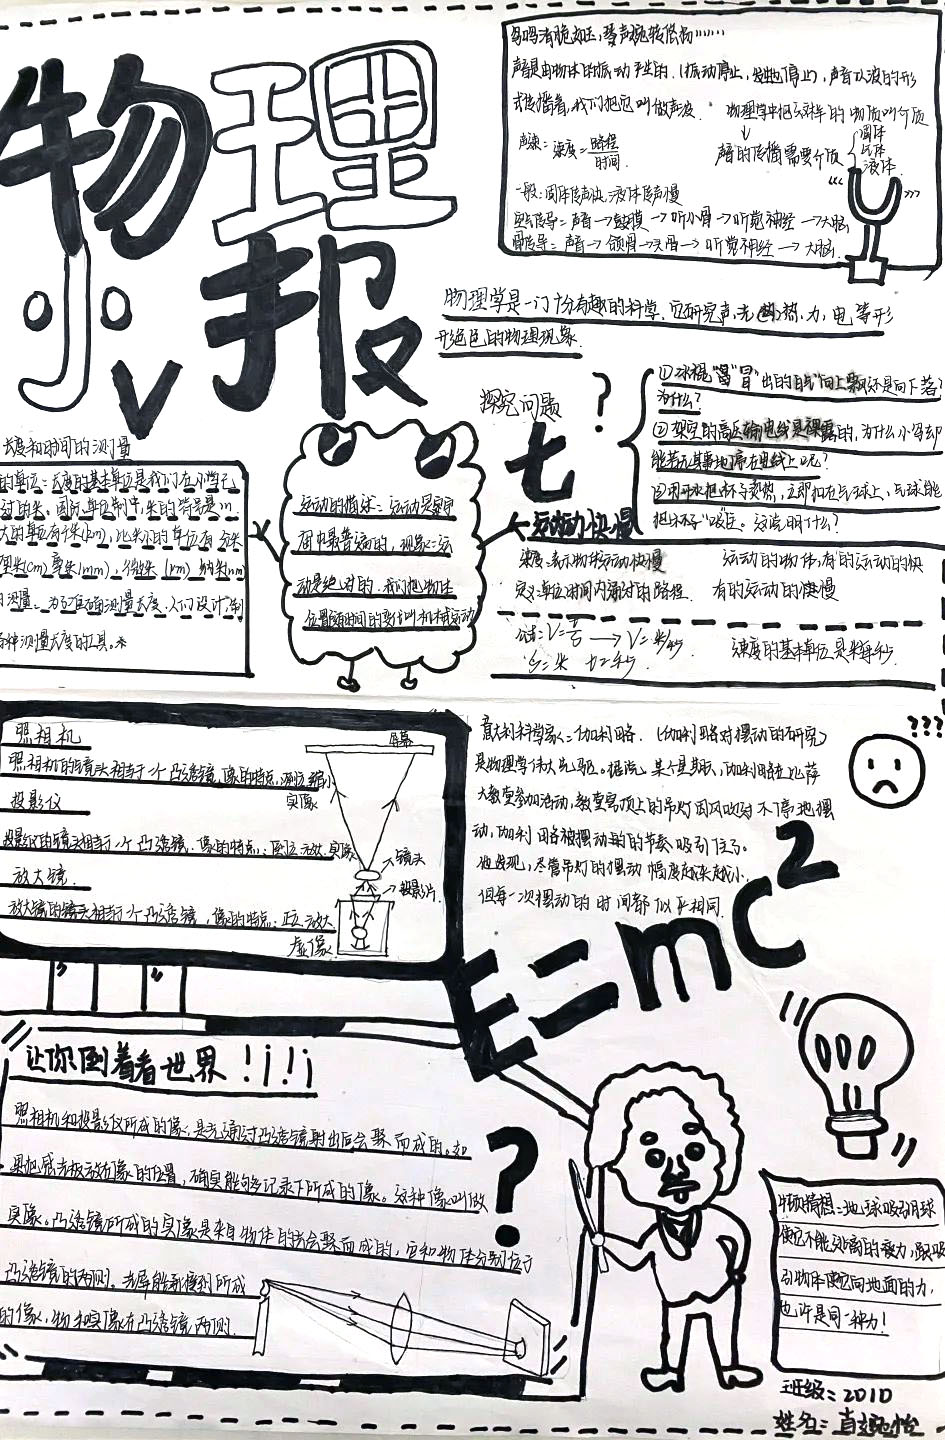 物理
小报
声音是由物体的振动产生的.(振动停止,发声也停止),声音以波的形
式传播着,我们把它叫做声波. 物理学中把这样的物质叫介质
声速=速度=路程/时间. 声音的传播需要介质
固体
气体
液体
一般:固体传声快,液体传声慢
空气传导=声音→鼓膜→听小骨→听觉神经→大脑
骨传导=声音→颌骨→头骨→听觉神经→大脑.
物理学是一门十分有趣的科学.它研究声、光、热、力、电等形
形色色的物理现象.
探究问题
?
①冰棍“冒”出的“白气”向上飘还是向下落?
为什么?
②架空的高压输电线是裸露的,为什么小鸟却
能若无其事地停在电线上呢?
③用开水把杯子烫热,立即扣在气球上,气球能
把杯子“吸”住。这说明什么?
长度和时间的测量
的单位:长度的基本单位是我们在小学已
过的米。国际单位制中,米的符号是m.
大的单位有千米(km),比米小的单位有 分米
厘米(cm) 毫米(mm),微米 (μm) 纳米(nm)
测量:为了准确测量长度,人们设计制
各种测量长度的工具。
运动的描述:运动是宇宙
中最普遍的,现象:运
动是绝对的.我们把物体
位置随时间的变化叫机械运动
运动快慢
速度:表示物体运动快慢
定义:单位时间内通过的路程.
运动的物体,有的运动的快
有的运动的慢
公式:V=S/t → V=米/秒.
S=米 t=秒
速度的基本单位是米每秒.
照相机
照相机的镜头相当于一个凸透镜,像的特点:倒立缩小
实像
投影仪
投影仪的镜头相当于一个凸透镜.像的特点:倒立放大实像
放大镜.
放大镜的镜头相当于一个凸透镜,像的特点:正立放大
虚像
屏幕
镜头
投影片
意大利科学家:伽利略.(伽利略对摆动的研究)
是物理学伟大先驱。据说,某个星期天,伽利略在比萨
大教堂参加活动,教堂穹顶上的吊灯因风吹过不停地摆
动,伽利略被摆动的节奏吸引住了。
他发现,尽管吊灯的摆动幅度越来越小.
但每一次摆动的时间都似乎相同.
???
E=mc²
让你倒着看世界!¡!¡
照相机和投影仪所成的像,是光通过凸透镜射出后会聚而成的。如
果把感光板放在像的位置,确实能够记录下所成的像。这种像叫做
实像。凸透镜所成的实像是来自物体的光会聚而成的,它和物体分别位于
凸透镜的两侧。光屏能承接到所成
的像,物和实像在凸透镜两侧.
?
牛顿猜想:地球吸引月球
使它不能分离的引力,跟吸
引物体使它向地面的力,
也许是同一种力!
班级:2010
姓名: